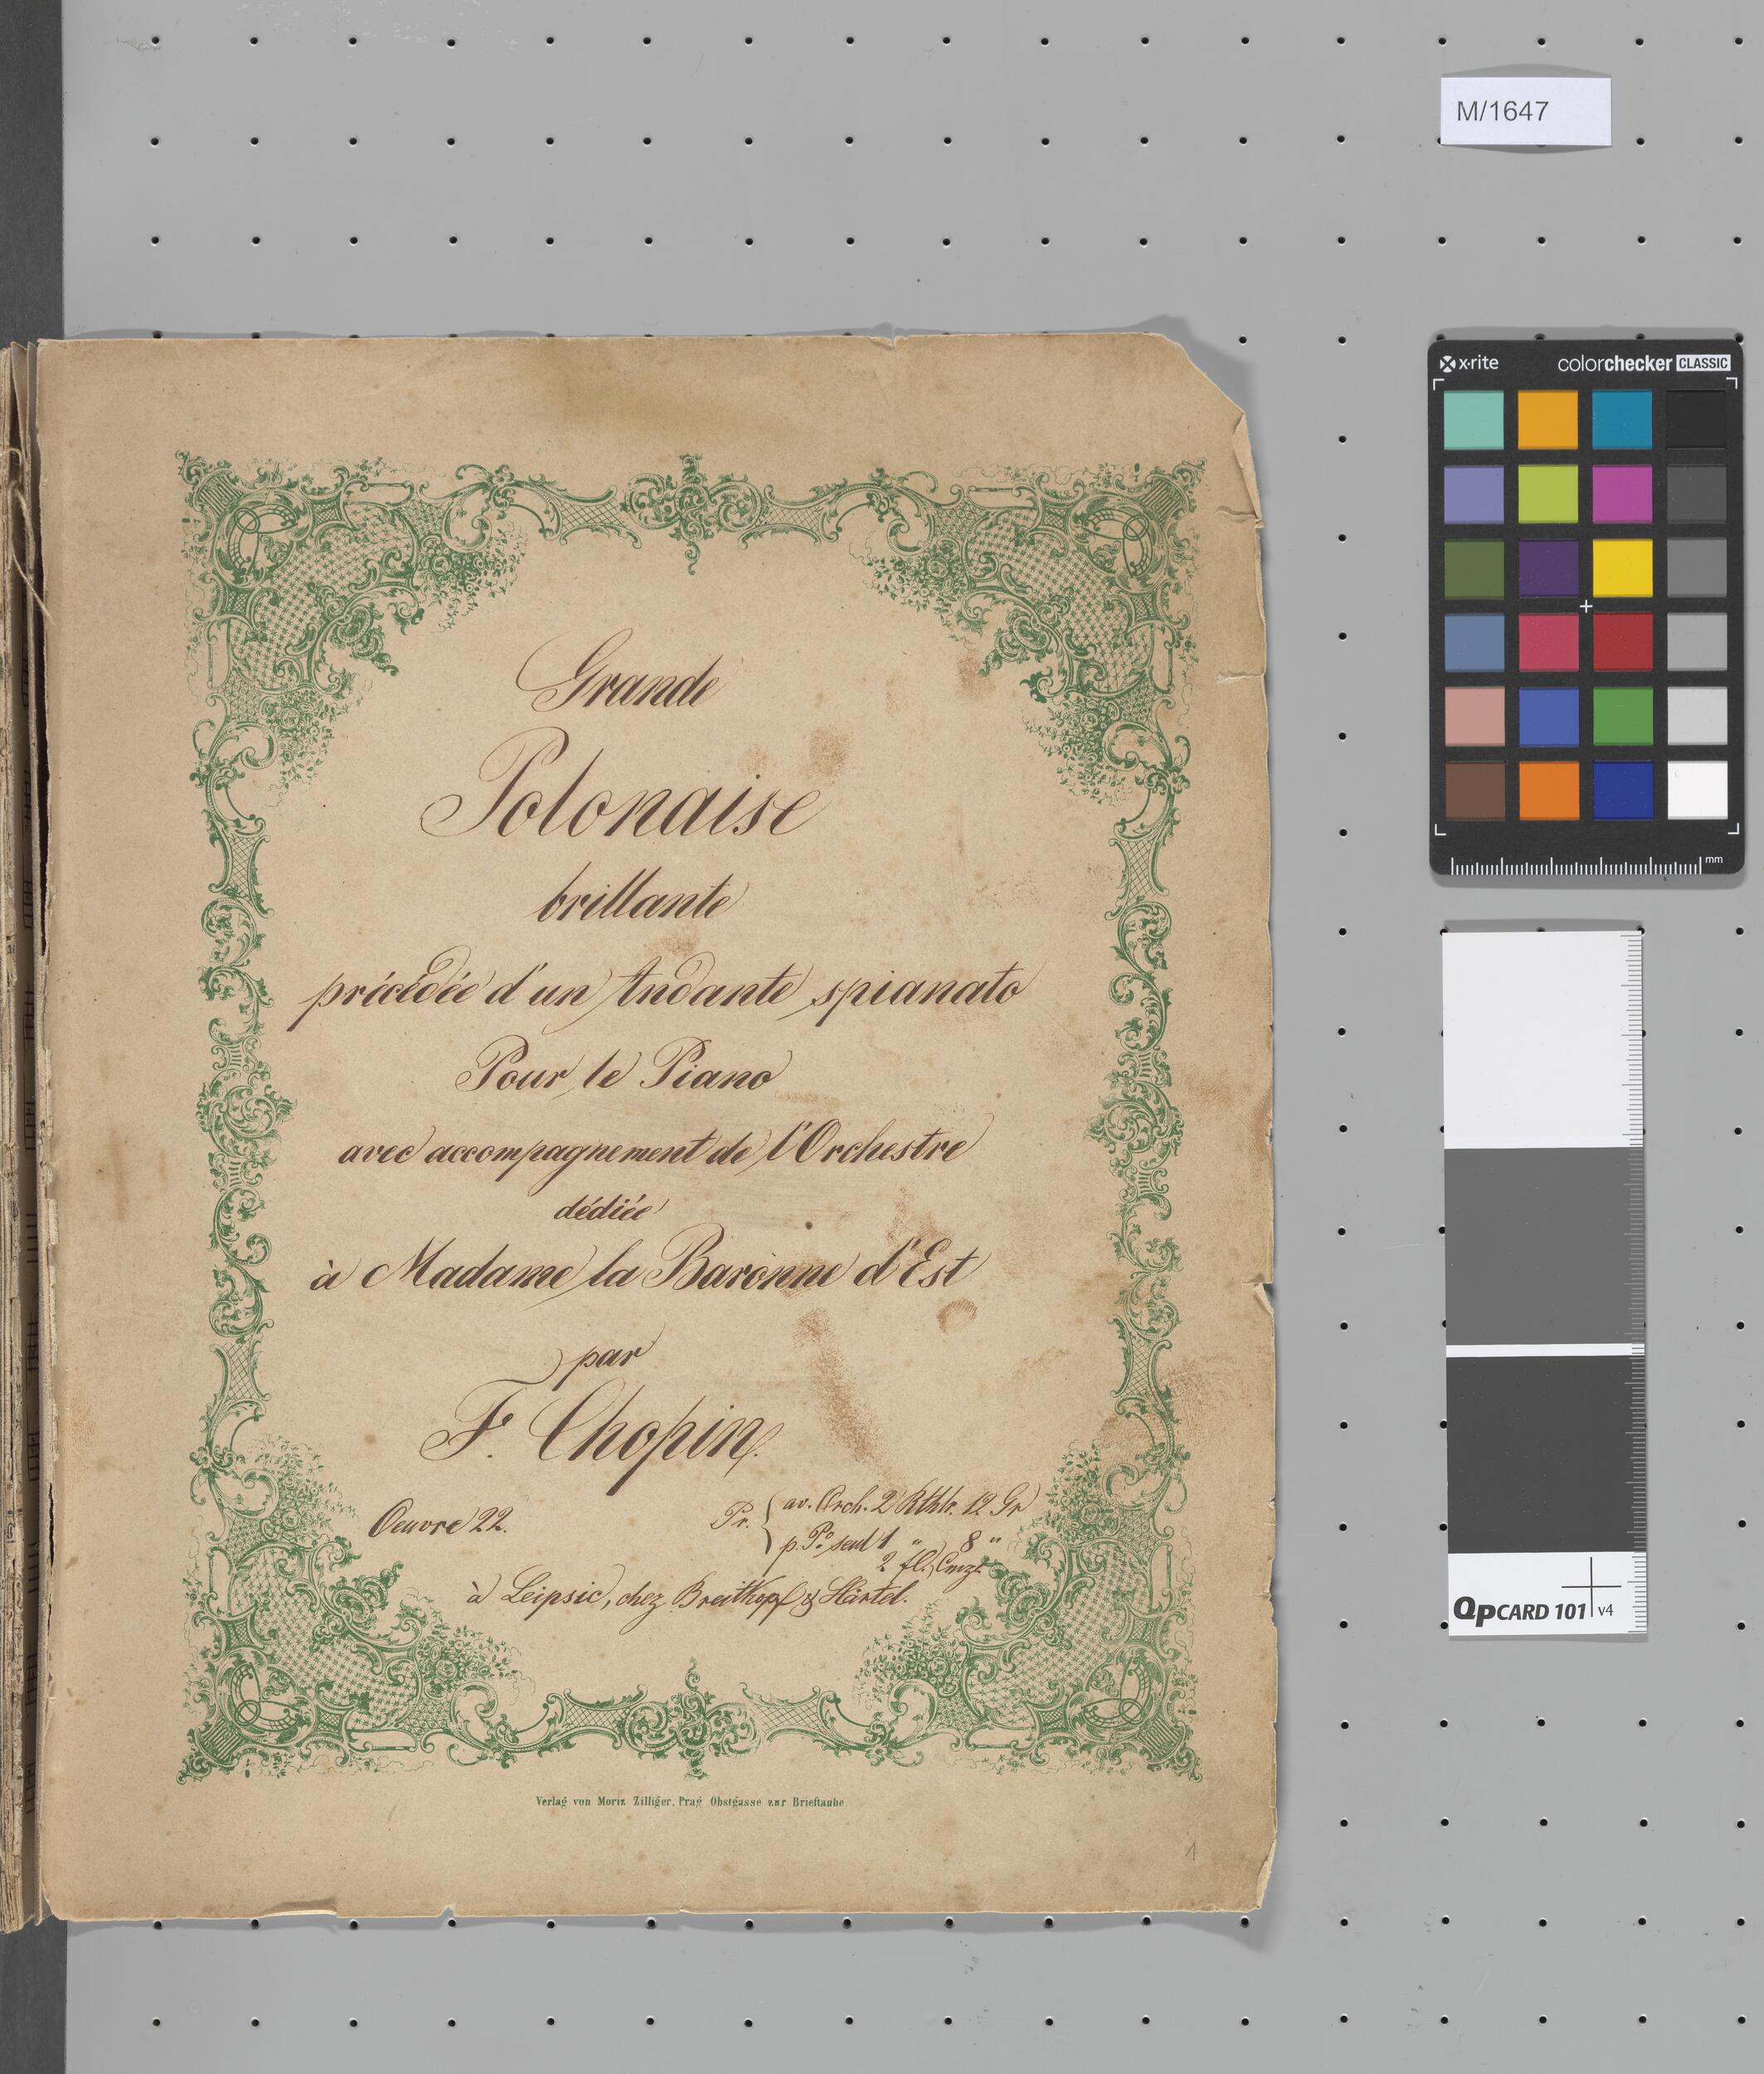 M/1647
x-rite colorchecker CLASSIC
mm
Grande
Polonaise
brillante
précédée d'un Andante spianato
Pour le Piano
avec accompagnement de l'Orchestre
dédiée
à Madame la Baronne d'Est
par
F. Chopin.
Oeuvre 22.
Pr. { av. Orch. 2 Rthlr. 12 Gr
p. Po. seul 1 " 8 "
2 fl.
à Leipsic, chez Breitkopf & Härtel.
Verlag von Moriz Zilliger, Prag Obstgasse zur Brieftaube
1
QPCARD 101 v4